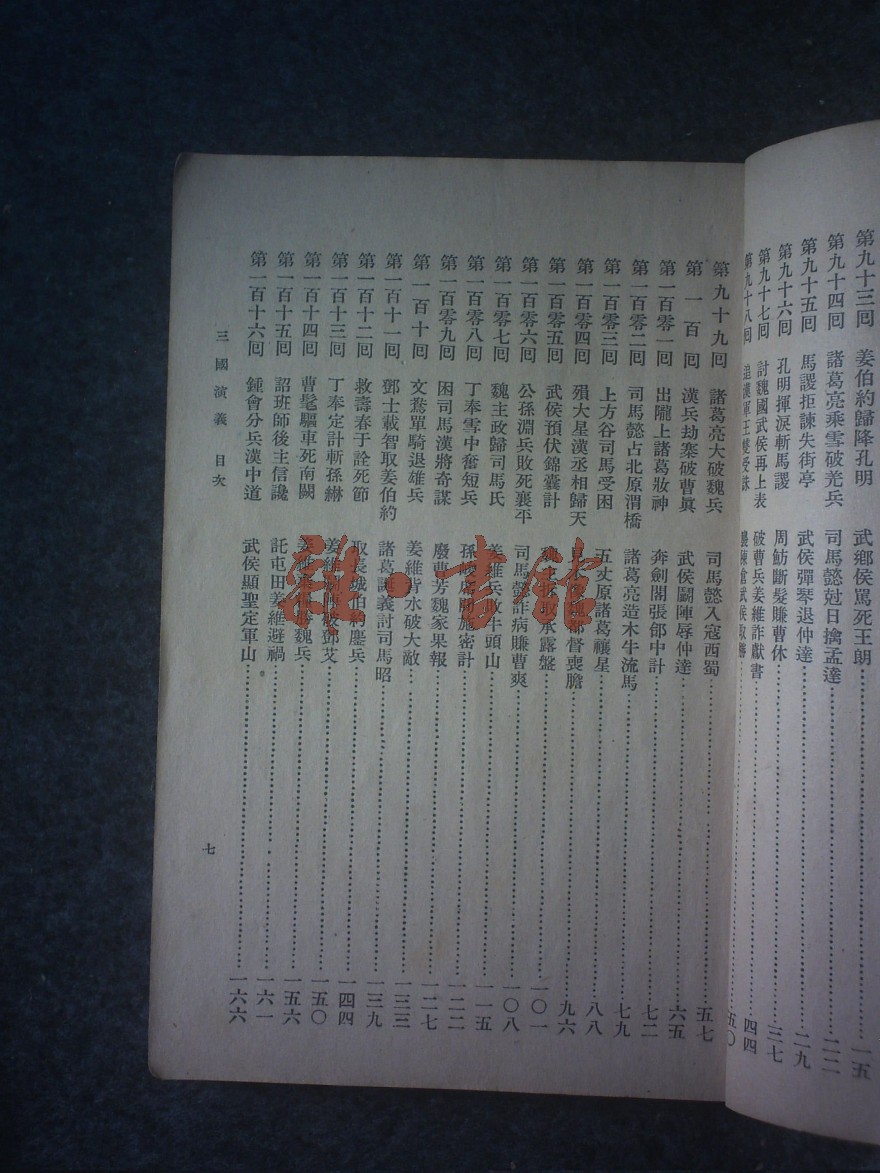 第九十三囘 姜伯約歸降孔明 武鄉侯罵死王朗 一五
第九十四囘 諸葛亮乘雪破羌兵 司馬懿尅日擒孟達 二二
第九十五囘 馬謖拒諫失街亭 武侯彈琴退仲達 二九
第九十六囘 孔明揮淚斬馬謖 周魴斷髮賺曹休 三七
第九十七囘 討魏國武侯再上表 破曹兵姜維詐獻書 四四
第九十八囘 追漢軍王雙受誅 武侯取勝 五〇
第九十九囘 諸葛亮大破魏兵 司馬懿入寇西蜀 五七
第一百囘 漢兵劫寨破曹眞 武侯鬭陣辱仲達 六五
第一百零一囘 出隴上諸葛妝神 奔劍閣張郃中計 七二
第一百零二囘 司馬懿占北原渭橋 諸葛亮造木牛流馬 七九
第一百零三囘 上方谷司馬受困 五丈原諸葛禳星 八八
第一百零四囘 殞大星漢丞相歸天 都督喪膽 九六
第一百零五囘 武侯預伏錦囊計 取承露盤 一〇一
第一百零六囘 公孫淵兵敗死襄平 司馬懿詐病賺曹爽 一〇八
第一百零七囘 魏主政歸司馬氏 姜維兵敗牛頭山 一一五
第一百零八囘 丁奉雪中奮短兵 孫峻席間施密計 一二二
第一百零九囘 困司馬漢將奇謀 廢曹芳魏家果報 一二七
第一百十囘 文鴦單騎退雄兵 姜維背水破大敵 一三三
第一百十一囘 鄧士載智取姜伯約 諸葛誕義討司馬昭 一三九
第一百十二囘 救壽春于詮死節 取長城伯約鏖兵 一四四
第一百十三囘 丁奉定計斬孫綝 姜維鬭陣破鄧艾 一五〇
第一百十四囘 曹髦驅車死南闕 姜維棄糧勝魏兵 一五六
第一百十五囘 詔班師後主信讒 託屯田姜維避禍 一六一
第一百十六囘 鍾會分兵漢中道 武侯顯聖定軍山 一六六
三國演義 目次
七
雜·書館